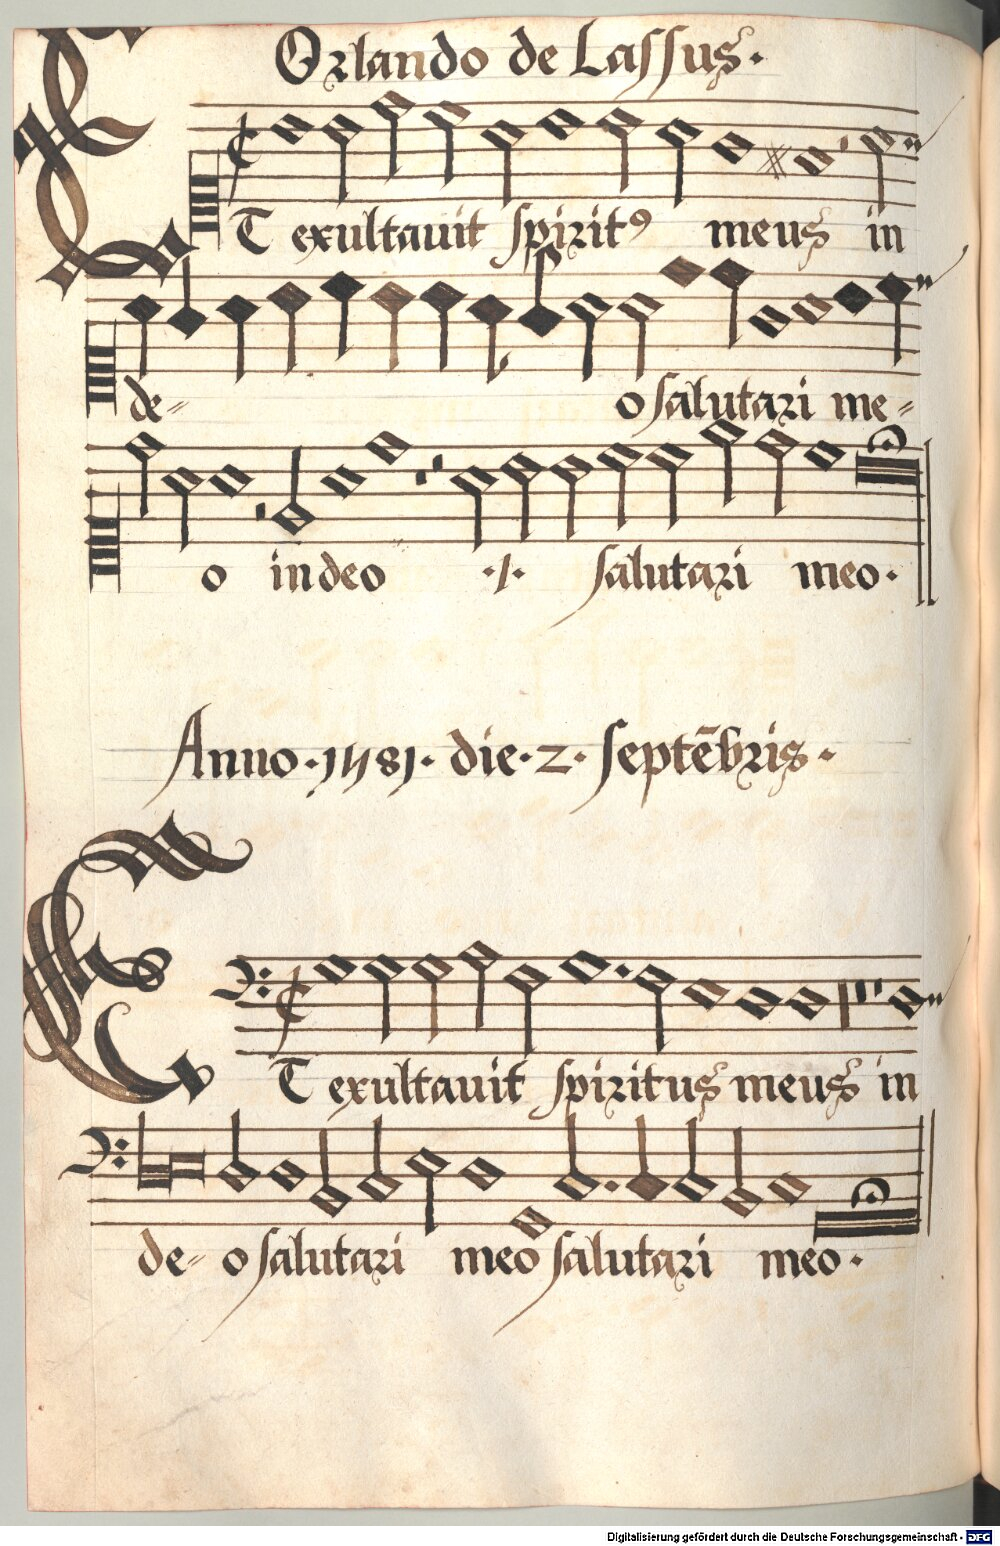 Orlando de Lassus.
ET exultauit spirit⁹ meus in
de- o salutari me-
o in deo ·/· salutari meo.
Anno·1581·die·2·septēbris·
ET exultauit spiritus meus in
de- o salutari meo salutari meo.
Digitalisierung gefördert durch die Deutsche Forschungsgemeinschaft - DFG